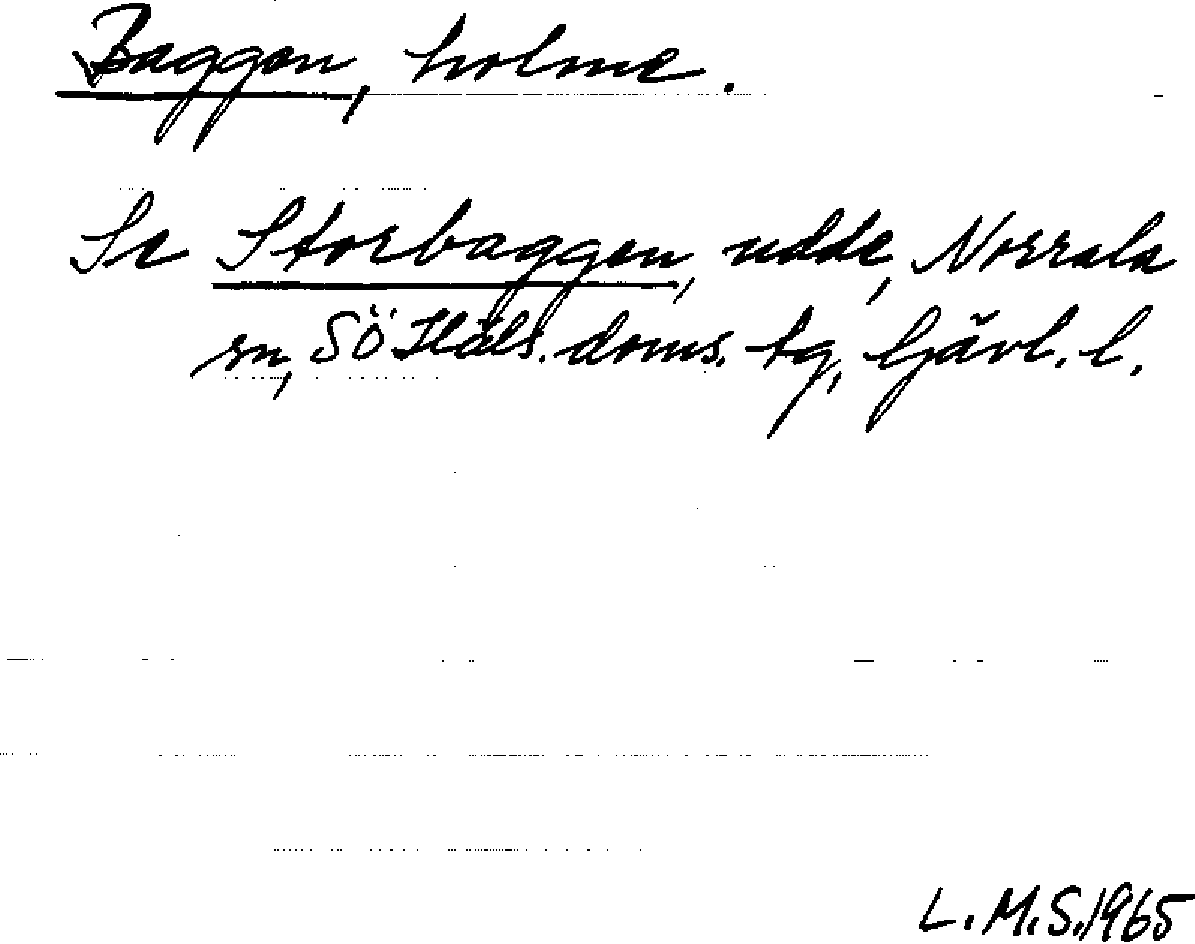 Baggen, holme.
Se Storbaggen, udde, Norrala
sn, SÖ Häls. doms. tg, Gävl. l.
L.M.S. 1965